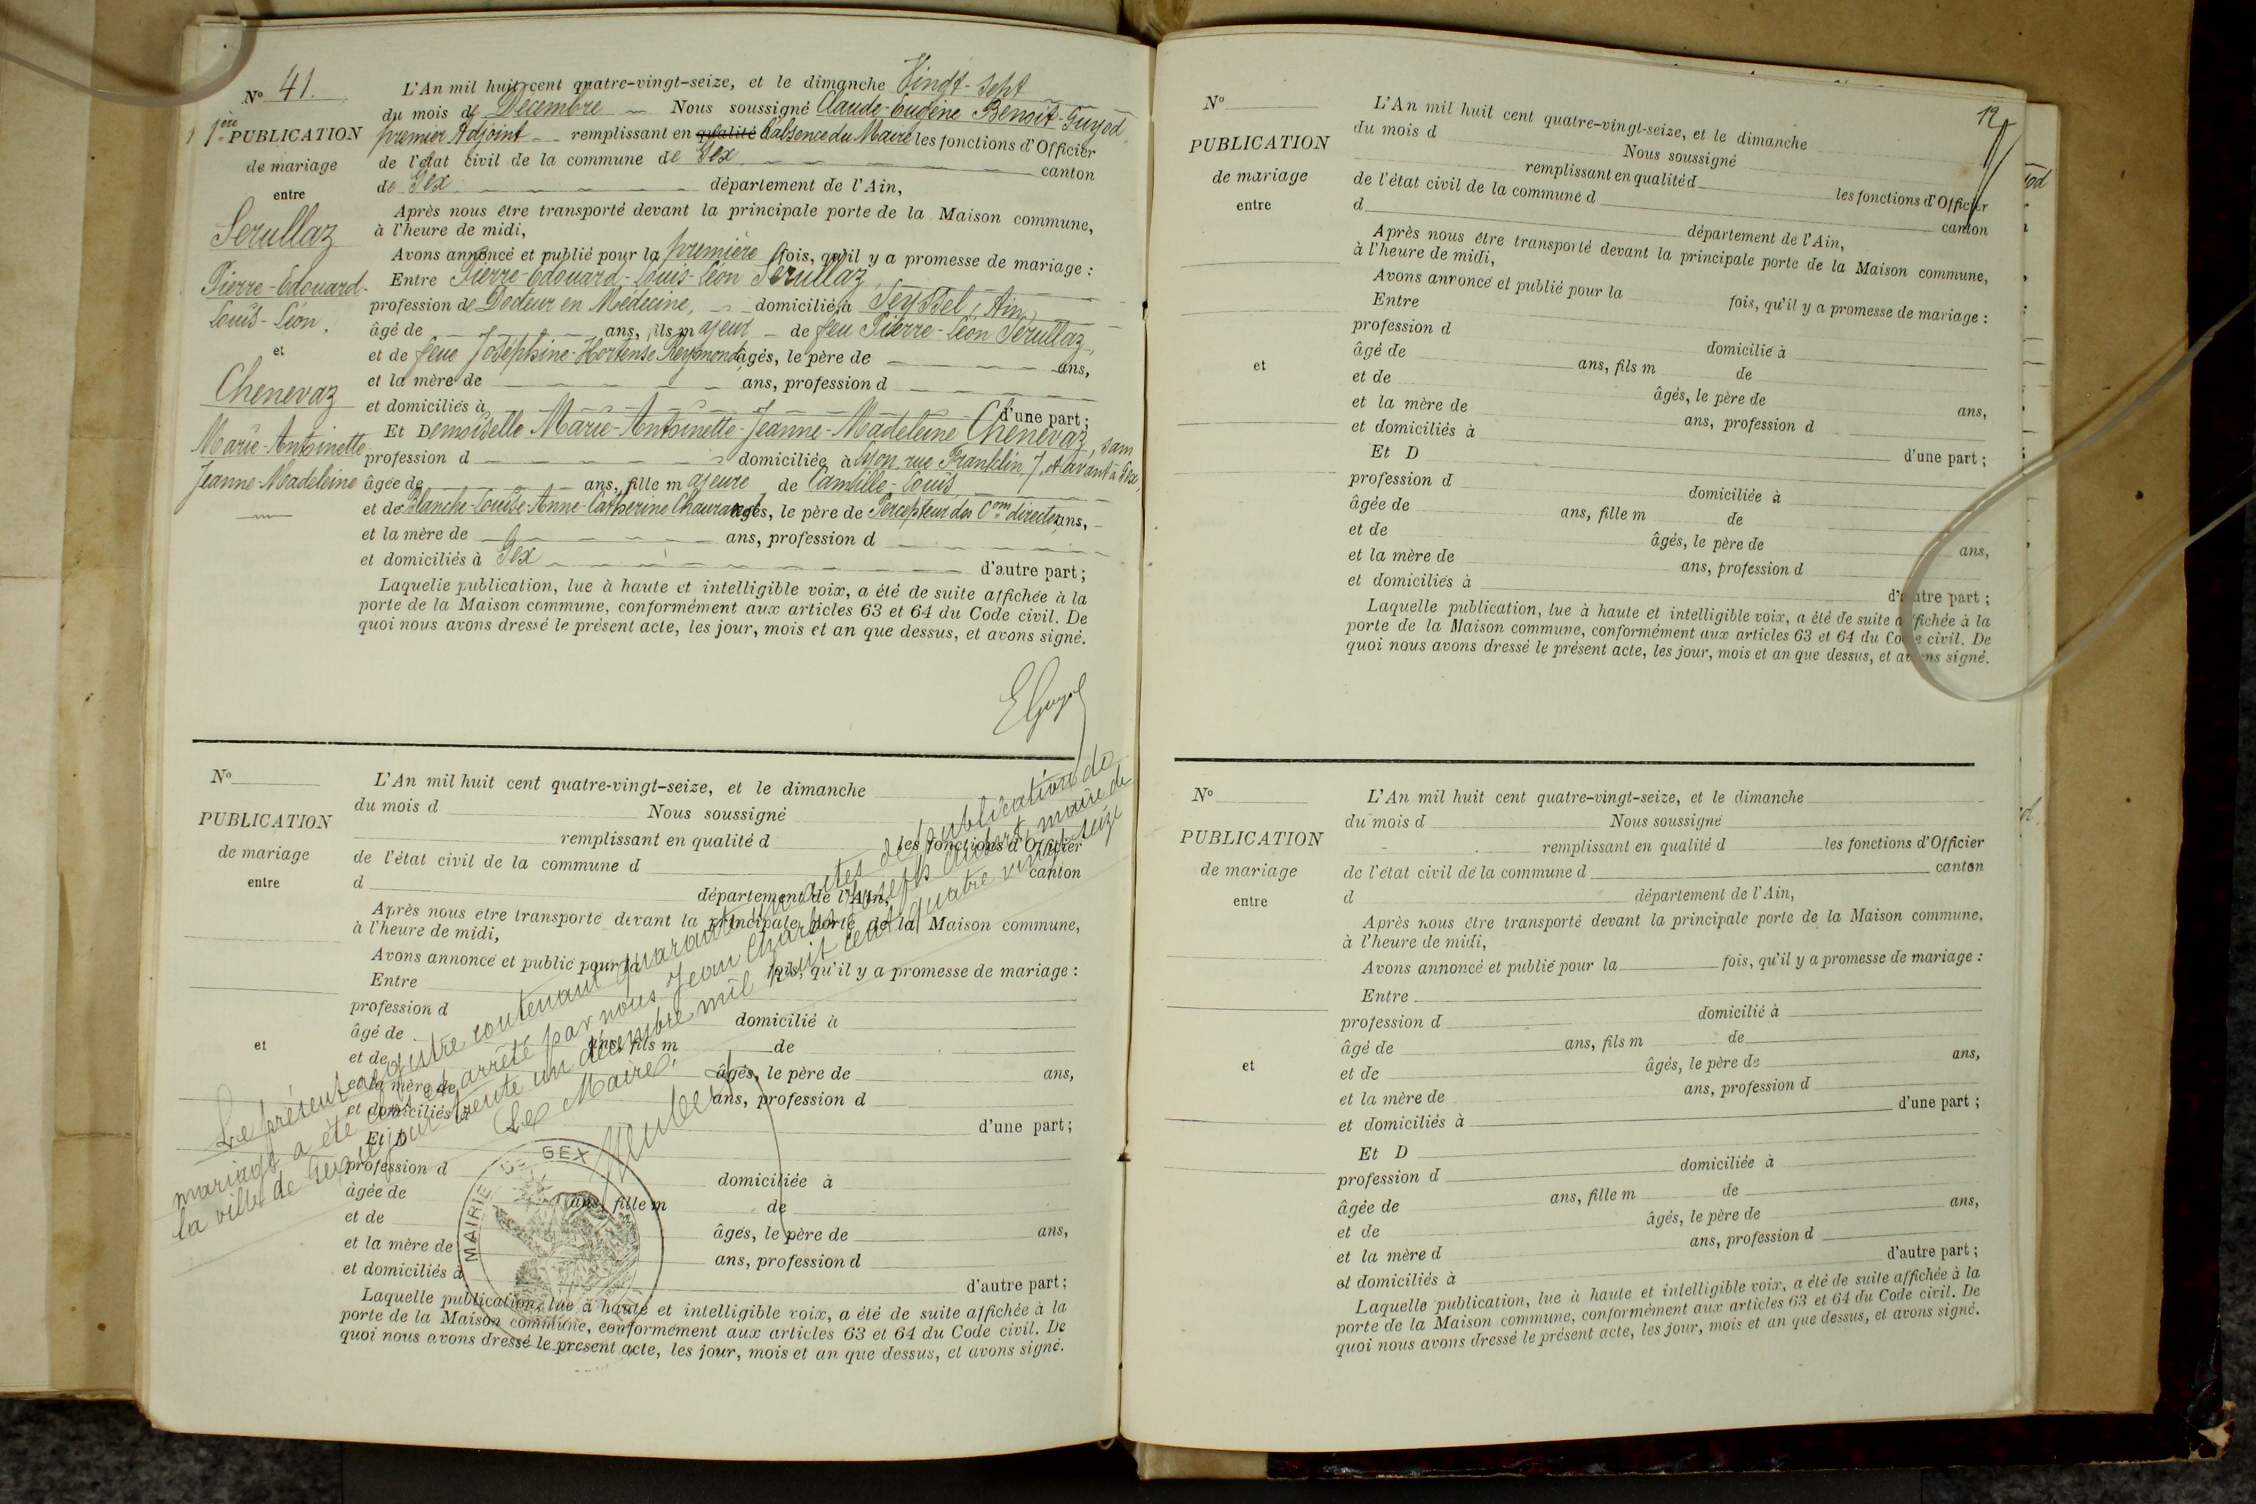 N° 41.
1ère PUBLICATION
de mariage
entre
Serullaz
Pierre-Edouard-
Louis-Léon.
et
Chenevaz
Marie-Antoinette
Jeanne-Madeleine
L'An mil huit cent quatre-vingt-seize, et le dimanche Vingt-sept
du mois de Décembre Nous soussigné Claude-Eugène Benoit-Guyod,
premier Adjoint remplissant en qualité l'absence du Maire les fonctions d'Officier
de l'état civil de la commune de Gex canton
de Gex département de l'Ain,
Après nous être transporté devant la principale porte de la Maison commune,
à l'heure de midi,
Avons annoncé et publié pour la première fois, qu'il y a promesse de mariage :
Entre Pierre-Edouard-Louis-Léon Serullaz,
profession de Docteur en Médecine, domicilié à Seyssel, Ain,
âgé de ans, fils majeur de feu Pierre-Léon Serullaz,
et de feue Joséphine-Hortense Reymond, âgés, le père de ans,
et la mère de ans, profession d
et domiciliés à d'une part ;
Et Demoiselle Marie-Antoinette-Jeanne-Madeleine Chenevaz, sans
profession d domiciliée à Lyon rue Franklin 7, et avant à Gex,
âgée de ans, fille majeure de Camille-Louis,
et de Blanche-Louise-Anne-Catherine Chaurand âgés, le père de Percepteur des Com directes, ans,
et la mère de ans, profession d
et domiciliés à Gex d'autre part ;
Laquelle publication, lue à haute et intelligible voix, a été de suite affichée à la
porte de la Maison commune, conformément aux articles 63 et 64 du Code civil. De
quoi nous avons dressé le présent acte, les jour, mois et an que dessus, et avons signé.
EGuyod
N°
PUBLICATION
de mariage
entre
et
L'An mil huit cent quatre-vingt-seize, et le dimanche
du mois d Nous soussigné
remplissant en qualité d les fonctions d'Officier
de l'état civil de la commune d canton
d département de l'Ain,
Après nous être transporté devant la principale porte de la Maison commune,
à l'heure de midi,
Avons annoncé et publié pour la fois, qu'il y a promesse de mariage :
Entre
profession d domicilié à
âgé de ans, fils m de
et de âgés, le père de ans,
et la mère de ans, profession d
et domiciliés à d'une part ;
Et D
profession d domiciliée à
âgée de ans, fille m de
et de âgés, le père de ans,
et la mère de ans, profession d
et domiciliés à d'autre part ;
Laquelle publication, lue à haute et intelligible voix, a été de suite affichée à la
porte de la Maison commune, conformément aux articles 63 et 64 du Code civil. De
quoi nous avons dressé le présent acte, les jour, mois et an que dessus, et avons signé.
Le présent registre contenant quarante un actes de publication de
mariage a été clos et arrêté par nous Jean Charles Joseph Aubert, maire de
la ville de Gex ce jour trente un décembre mil huit cent quatre vingt seize
Le Maire,
MAIRIE DE GEX
12
N°
PUBLICATION
de mariage
entre
et
L'An mil huit cent quatre-vingt-seize, et le dimanche
du mois d Nous soussigné
remplissant en qualité d les fonctions d'Officier
de l'état civil de la commune d canton
d département de l'Ain,
Après nous être transporté devant la principale porte de la Maison commune,
à l'heure de midi,
Avons annoncé et publié pour la fois, qu'il y a promesse de mariage :
Entre
profession d domicilié à
âgé de ans, fils m de
et de âgés, le père de ans,
et la mère de ans, profession d
et domiciliés à d'une part ;
Et D
profession d domiciliée à
âgée de ans, fille m de
et de âgés, le père de ans,
et la mère de ans, profession d
et domiciliés à d'autre part ;
Laquelle publication, lue à haute et intelligible voix, a été de suite affichée à la
porte de la Maison commune, conformément aux articles 63 et 64 du Code civil. De
quoi nous avons dressé le présent acte, les jour, mois et an que dessus, et avons signé.
N°
PUBLICATION
de mariage
entre
et
L'An mil huit cent quatre-vingt-seize, et le dimanche
du mois d Nous soussigné
remplissant en qualité d les fonctions d'Officier
de l'état civil de la commune d canton
d département de l'Ain,
Après nous être transporté devant la principale porte de la Maison commune,
à l'heure de midi,
Avons annoncé et publié pour la fois, qu'il y a promesse de mariage :
Entre
profession d domicilié à
âgé de ans, fils m de
et de âgés, le père de ans,
et la mère de ans, profession d
et domiciliés à d'une part ;
Et D
profession d domiciliée à
âgée de ans, fille m de
et de âgés, le père de ans,
et la mère d ans, profession d
et domiciliés à d'autre part ;
Laquelle publication, lue à haute et intelligible voix, a été de suite affichée à la
porte de la Maison commune, conformément aux articles 63 et 64 du Code civil. De
quoi nous avons dressé le présent acte, les jour, mois et an que dessus, et avons signé.